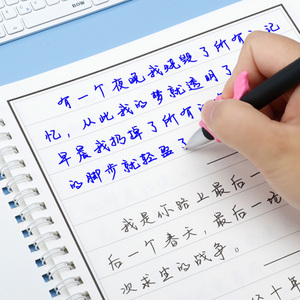 有一个夜晚我烧毁了所有的记
忆，从此我的梦就透明了
早晨我扔掉了所有
的脚步就轻盈了
我是你路上最后一
后一个春天，最后一
次求生的战争。